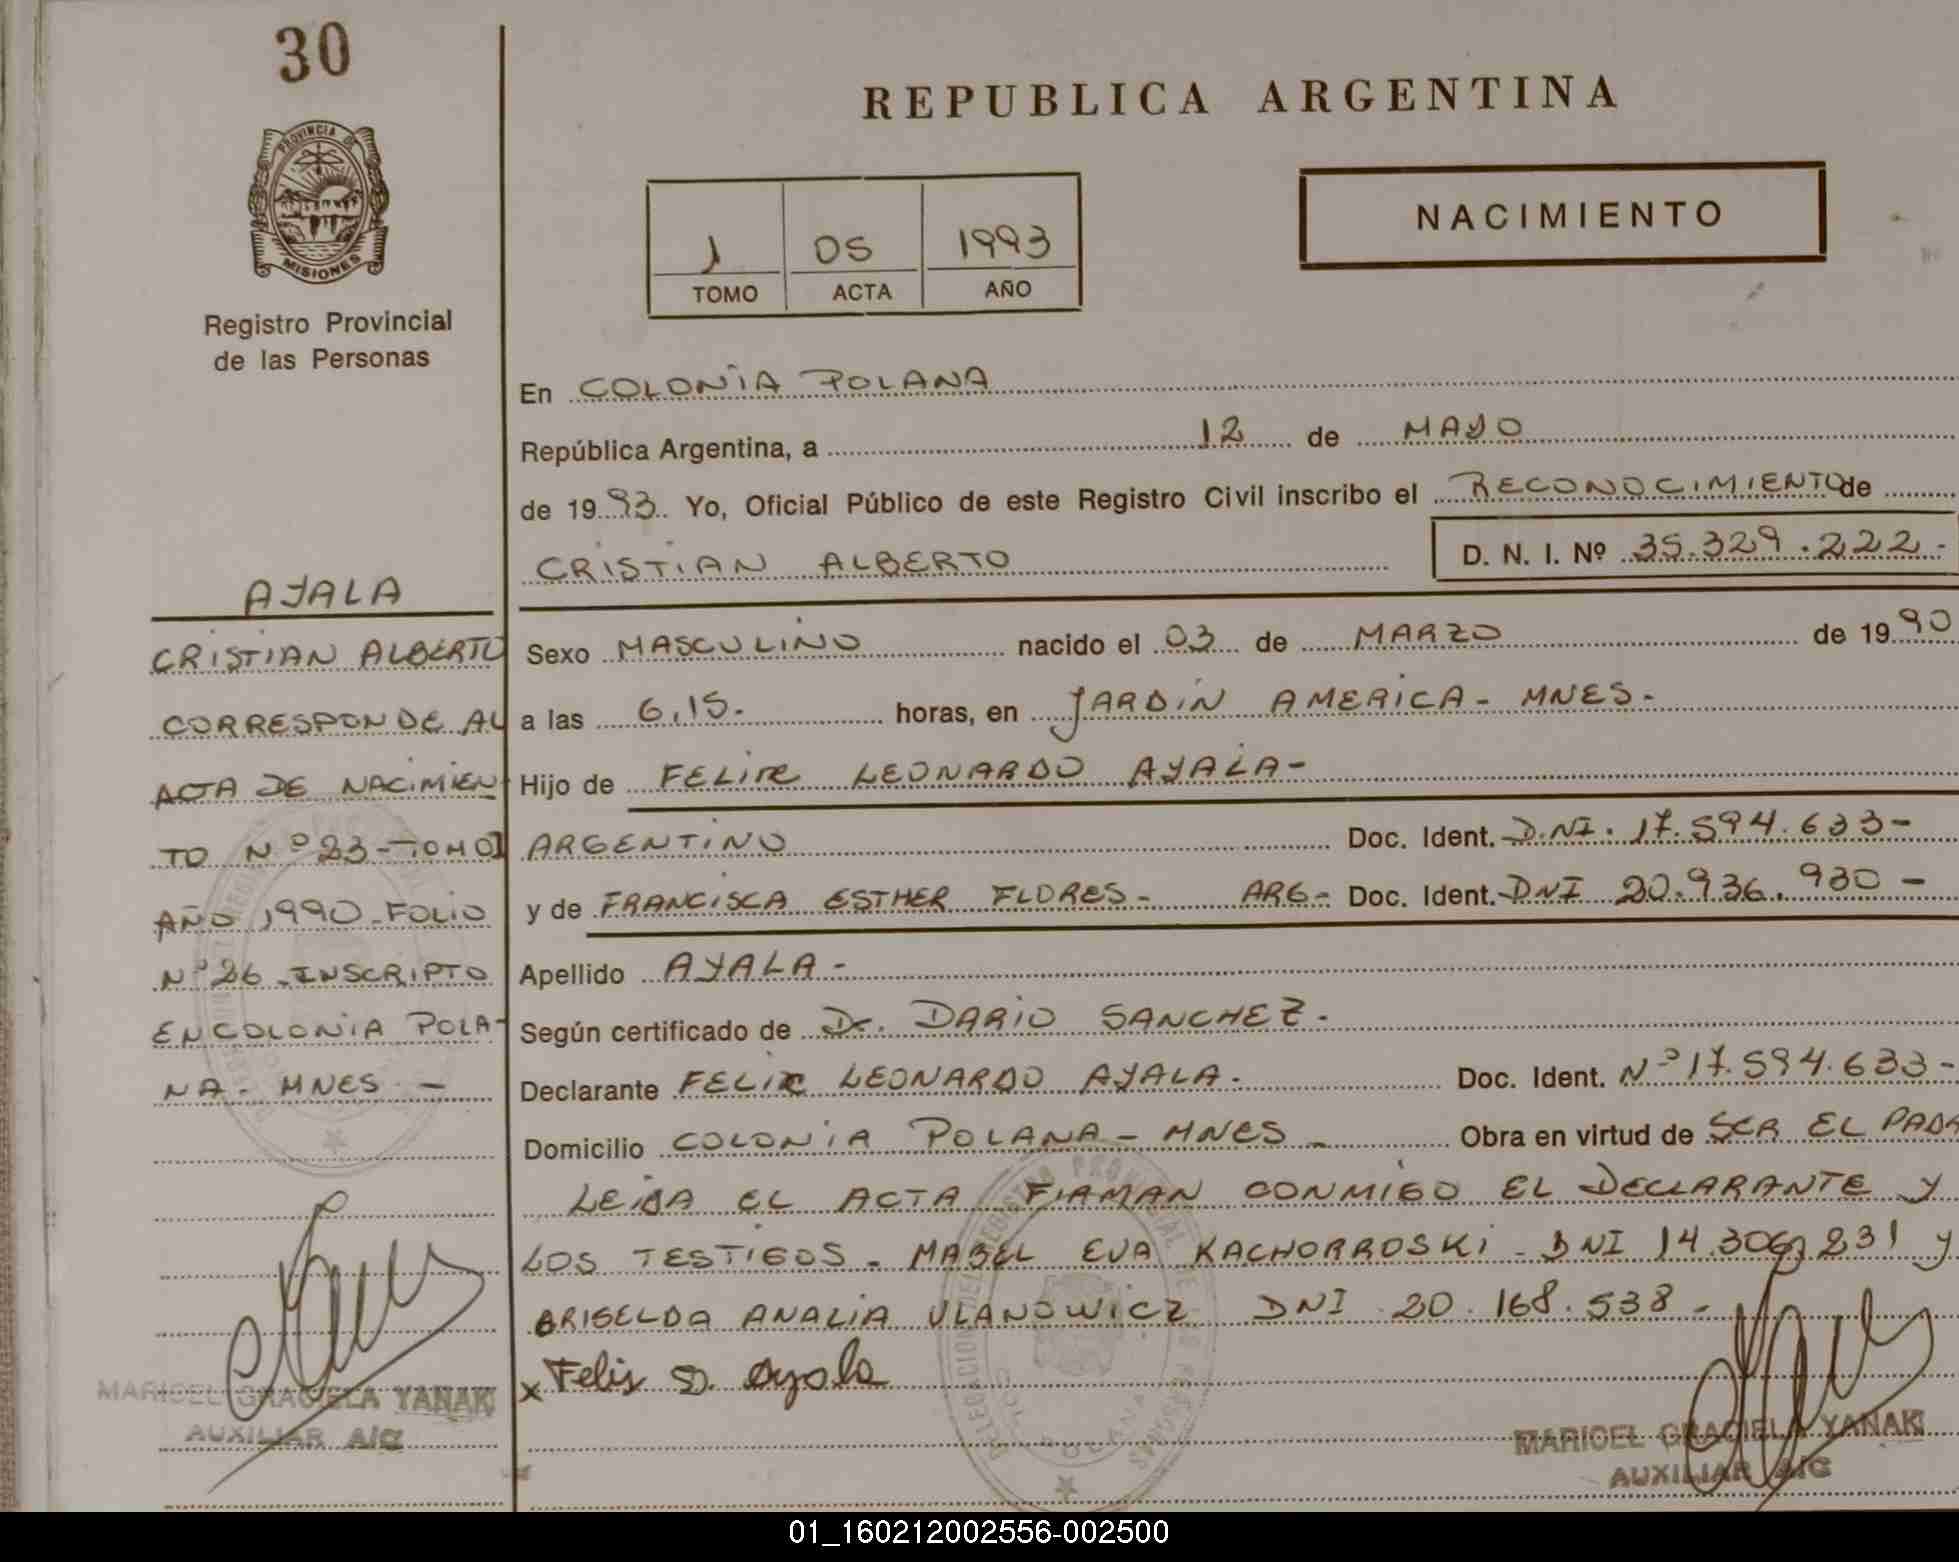 30
REPUBLICA ARGENTINA
PROVINCIA DE
MISIONES
NACIMIENTO
1 05 1993
TOMO ACTA AÑO
Registro Provincial
de las Personas
En COLONIA POLANA
República Argentina, a 12 de MAYO
de 1993. Yo, Oficial Público de este Registro Civil inscribo el RECONOCIMIENTO de
CRISTIAN ALBERTO D. N. I. Nº 35.329.222-
AYALA
CRISTIAN ALBERTO
CORRESPONDE AL
ACTA DE NACIMIEN-
TO Nº 23-TOMO I
AÑO 1990-FOLIO
Nº 26-INSCRIPTO
EN COLONIA POLA-
NA- MNES -
Sexo MASCULINO nacido el 03 de MARZO de 1990
a las 6,15. horas, en JARDIN AMERICA- MNES-
Hijo de LEONARDO AYALA-
ARGENTINO Doc. Ident. D.NI. 17.594.633-
y de FRANCISCA ESTHER FLORES- ARG- Doc. Ident. DNI 20.936.930-
Apellido AYALA-
Según certificado de Dr. DARIO SANCHEZ.
Declarante LEONARDO AYALA. Doc. Ident. Nº 17.594.633-
Domicilio COLONIA POLANA- MNES- Obra en virtud de SER EL PADR
LEIDA EL ACTA FIRMAN CONMIGO EL DECLARANTE Y
LOS TESTIGOS- MABEL EVA KACHORROSKI- DNI 14.306.231 y
GRISELDA ANALIA ULANOWICZ DNI 20.168.538-
x Felis Ayala
MARICEL GRACIELA YANAK
AUXILIAR A/C
MARICEL GRACIELA YANAK
AUXILIAR A/C
01_160212002556-002500